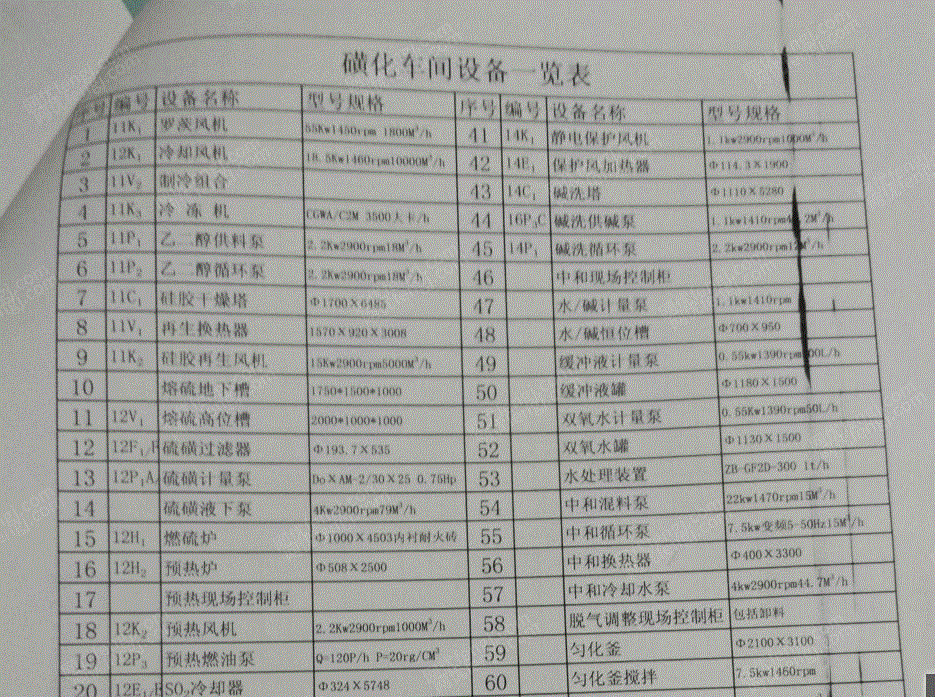 磺化车间设备一览表
序号 编号 设备名称 型号规格 序号 编号 设备名称 型号规格
1 11K₁ 罗茨风机 55Kw1450rpm 1800M³/h 41 14K₁ 静电保护风机 1.1kw2900rpm1000M³/h
2 12K₁ 冷却风机 18.5Kw1460rpm10000M³/h 42 14E₁ 保护风加热器 Φ114.3×1900
3 11V₂ 制冷组合 43 14C₁ 碱洗塔 Φ1110×5280
4 11K₃ 冷 冻 机 CGWA/C2M 3500大卡/h 44 16P₃C 碱洗供碱泵 1.1kw1410rpm 2M³/h
5 11P₁ 乙二醇供料泵 2.2Kw2900rpm18M³/h 45 14P₁ 碱洗循环泵 2.2kw2900rpm12M³/h
6 11P₂ 乙二醇循环泵 2.2Kw2900rpm18M³/h 46 中和现场控制柜
7 11C₁ 硅胶干燥塔 Φ1700×6485 47 水/碱计量泵 1.1kw1410rpm
8 11V₁ 再生换热器 1570×920×3008 48 水/碱恒位槽 Φ700×950
9 11K₂ 硅胶再生风机 15Kw2900rpm5000M³/h 49 缓冲液计量泵 0.55kw1390rpm 00L/h
10 熔硫地下槽 1750*1500*1000 50 缓冲液罐 Φ1180×1500
11 12V₁ 熔硫高位槽 2000*1000*1000 51 双氧水计量泵 0.55Kw1390rpm50L/h
12 12F₁/F 硫磺过滤器 Φ193.7×535 52 双氧水罐 Φ1130×1500
13 12P₁A 硫磺计量泵 Do×AM-2/30×25 0.75Hp 53 水处理装置 ZB-GF2D-300 1t/h
14 硫磺液下泵 4Kw2900rpm79M³/h 54 中和混料泵 22kw1470rpm15M³/h
15 12H₁ 燃硫炉 Φ1000×4503内衬耐火砖 55 中和循环泵 7.5kw变频5-50Hz15M³/h
16 12H₂ 预热炉 Φ508×2500 56 中和换热器 Φ400×3300
17 预热现场控制柜 57 中和冷却水泵 4kw2900rpm44.7M³/h
18 12K₂ 预热风机 2.2Kw2900rpm1000M³/h 58 脱气调整现场控制柜 包括卸料
19 12P₃ 预热燃油泵 Q=120P/h P=20rg/CM³ 59 匀化釜 Φ2100×3100
20 12E₁/B SO₂冷却器 Φ324×5748 60 匀化釜搅拌 7.5kw1460rpm